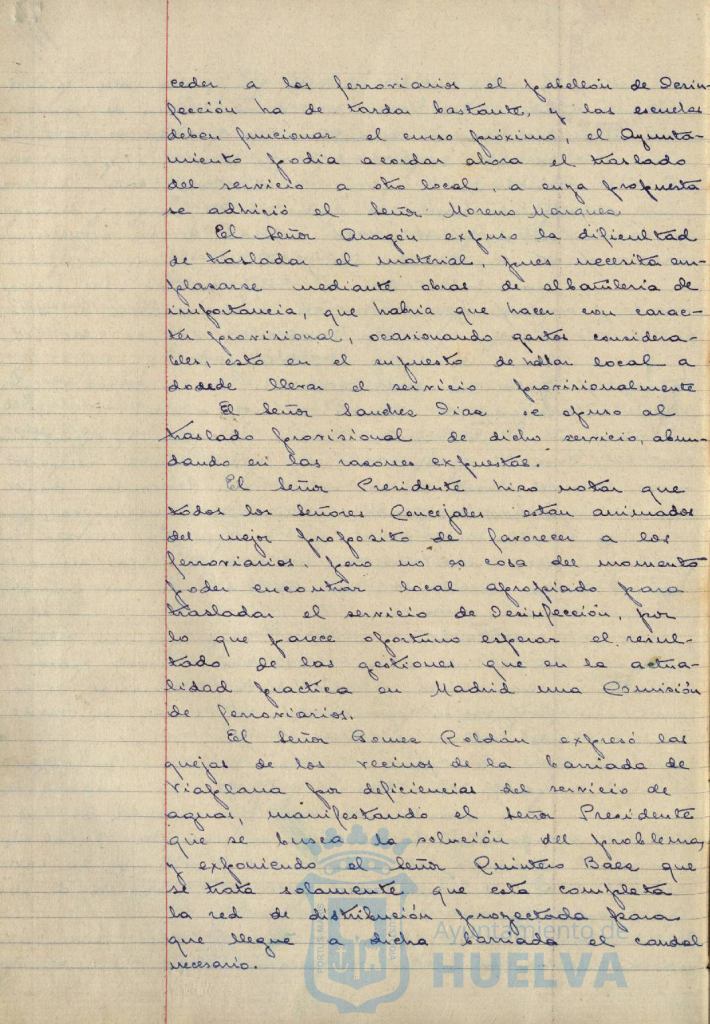 ceder a los ferroviarios el pabellón de Desin-
fección ha de tardar bastante, y las escuelas
deben funcionar el curso próximo, el Ayunta-
miento podía acordar ahora el traslado
del servicio a otro local, a cuya propuesta
se adhirió el Señor Moreno Márquez
El Señor Aragón expuso la dificultad
de trasladar el material, pues necesita em-
plazarse mediante obras de albañilería de
importancia, que habría que hacer con carac-
ter provisional, ocasionando gastos considera-
bles, esto en el supuesto de hallar local a
dodede llevar el servicio provisionalmente
El Señor Sanchez Diaz se opuso al
traslado provisional de dicho servicio, abun-
dando en las razones expuestas.
El Señor Presidente hizo notar que
todos los Señores Concejales están animados
del mejor proposito de favorecer a los
ferroviarios, pero no es cosa del momento
poder encontrar local apropiado para
trasladar el servicio de Desinfección, por
lo que parece oportuno esperar el resul-
tado de las gestiones que en la actua-
lidad practica en Madrid una Comisión
de ferroviarios.
El Señor Gomez Roldán expresó las
quejas de los vecinos de la barriada de
Viaplana por deficiencias del servicio de
aguas, manifestando el Señor Presidente
que se busca la solución del problema,
y exponiendo el Señor Quintero Baez que
se trata solamente que esta completa
la red de distribución proyectada para
que llegue a dicha barriada el caudal
necesario.
Ayuntamiento de
HUELVA